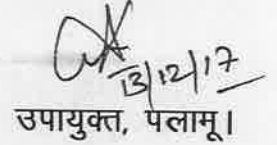 13/12/17
उपायुक्त, पलामू।